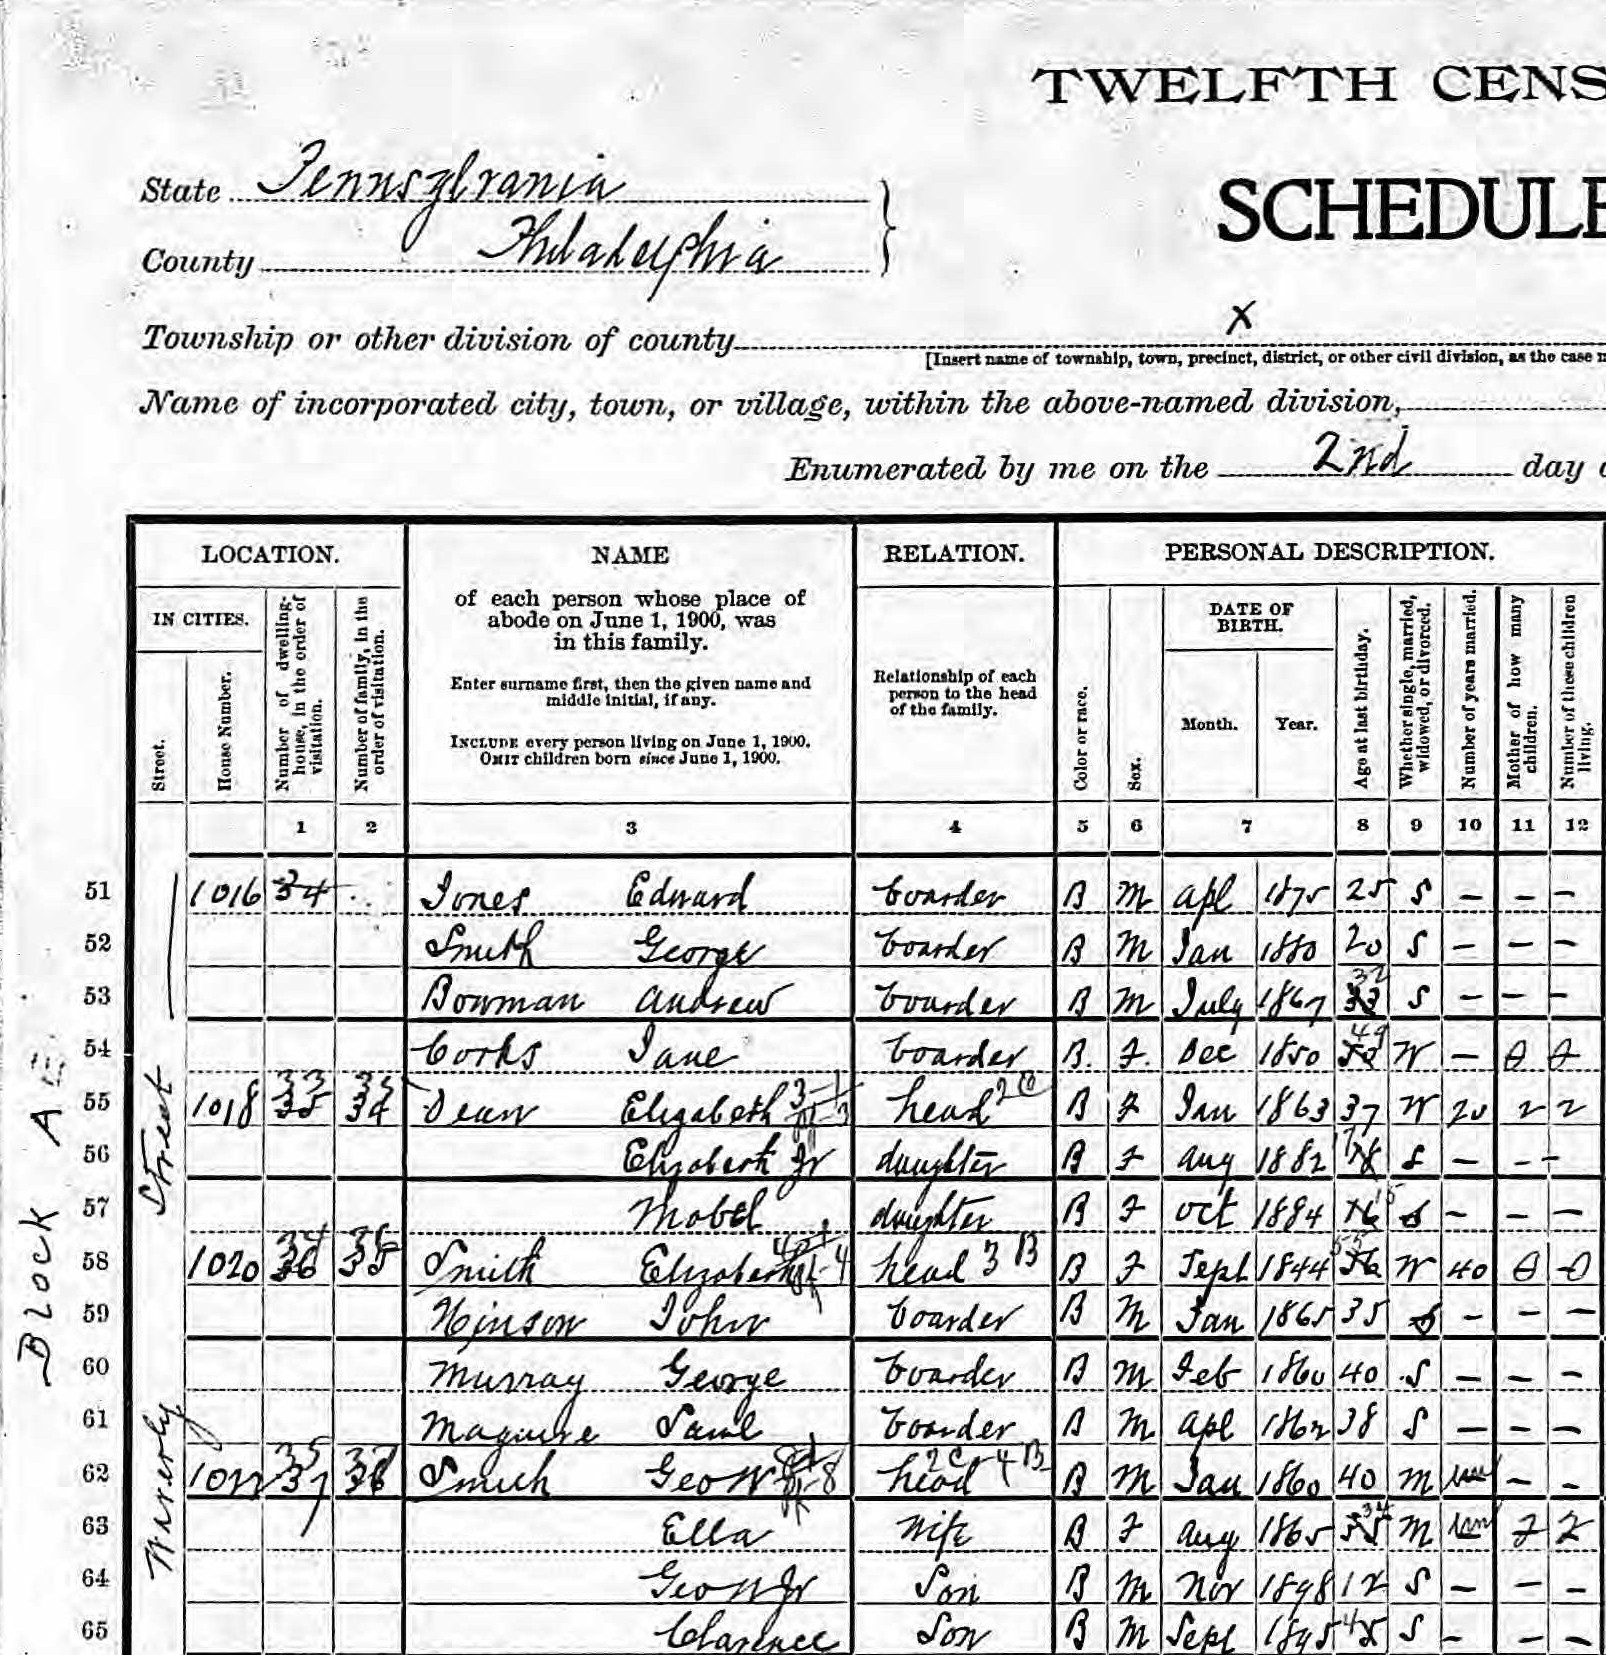 TWELFTH CENS
State Pennsylvania
SCHEDULE
County Philadelphia
Township or other division of county X
[Insert name of township, town, precinct, district, or other civil division, as the case m
Name of incorporated city, town, or village, within the above-named division,
Enumerated by me on the 2nd day o
LOCATION.
IN CITIES.
Street.
House Number.
Number of dwelling-house, in the order of visitation.
Number of family, in the order of visitation.
NAME
of each person whose place of
abode on June 1, 1900, was
in this family.
Enter surname first, then the given name and
middle initial, if any.
INCLUDE every person living on June 1, 1900.
OMIT children born since June 1, 1900.
RELATION.
Relationship of each
person to the head
of the family.
PERSONAL DESCRIPTION.
Color or race.
Sex.
DATE OF
BIRTH.
Month. Year.
Age at last birthday.
Whether single, married, widowed, or divorced.
Number of years married.
Mother of how many children.
Number of these children living.
1 2 3 4 5 6 7 8 9 10 11 12
Block A E
Waverly Street
51 1016 34 Jones Edward boarder B M Apl 1875 25 S — — —
52 Smith George boarder B M Jan 1880 20 S — — —
53 Bowman Andrew boarder B M July 1867 32 S — — —
54 Jane boarder B. F. Dec 1850 49 W — 0 0
55 1018 33 Dean Elizabeth head B F Jan 1863 37 W 20 2 2
56 Elizabeth Jr daughter B F Aug 1882 17 S — — —
57 Mabel daughter B F Oct 1884 15 S — — —
58 1020 34 Smith Elizabeth head 3 B B F Sept 1844 55 W 40 0 0
59 Hinson John boarder B M Jan 1865 35 S — — —
60 Murray George boarder B M Feb 1860 40 S — — —
61 Maguire Saml boarder B M Apl 1862 38 S — — —
62 1022 35 Smith Geo W head 4 B B M Jan 1860 40 M — —
63 Ella Wife B F Aug 1865 34 M 2 2
64 Geo W Jr Son B M Nov 1898 S — — —
65 Clarence Son B M Sept 1895 4 S — — —